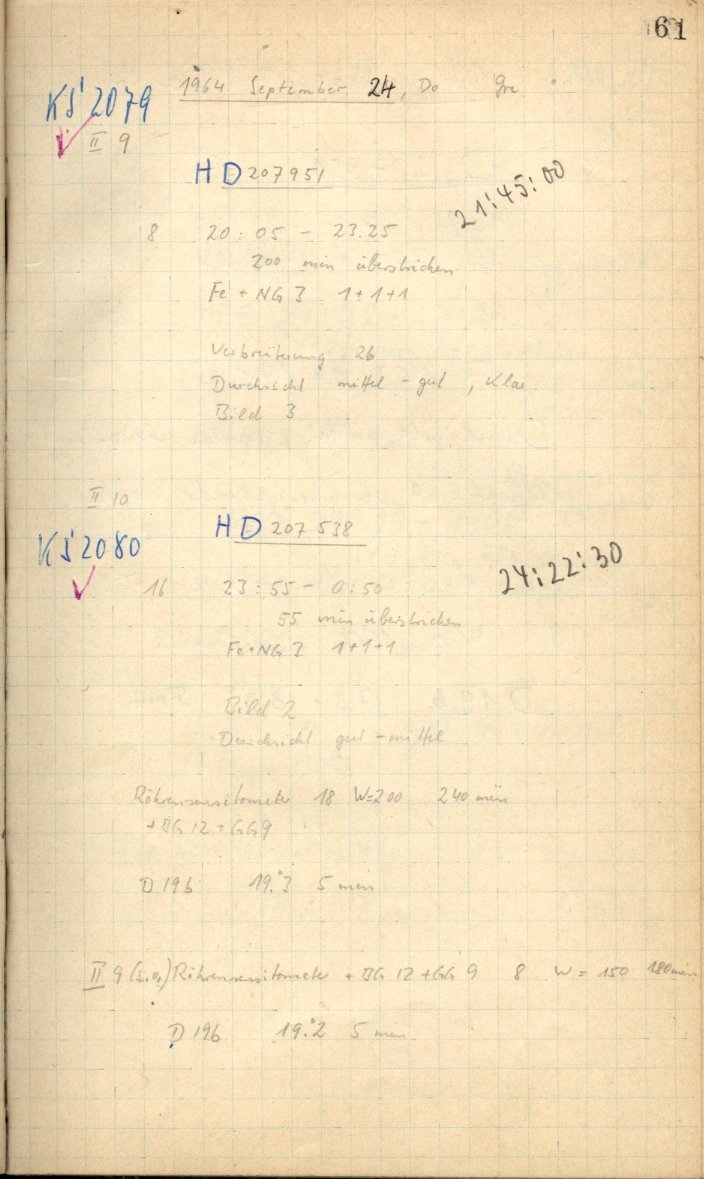 61
1964 September, 24, Do Gre
KS 2079
II 9
HD 207951
21:45:00
8 20:05 - 23.25
200 min überstrichen
Fe + NG 3 1+1+1
Verbreiterung 26
Durchsicht mittel - gut, klar
Bild 3
II 10
HD 207 538
KS 2080
24:22:30
16 23:55 - 0:50
55 min überstrichen
Fe+NG 3 1+1+1
Bild 2
Durchsicht gut - mittel
Röhrensensitometer 18 W=200 240 min
+ BG 12 + GG9
D 196 19.°3 5 min
II 9 (s.o.) Röhrensensitometer + BG 12 + GG 9 8 W = 150 180 min
D 196 19.°2 5 min